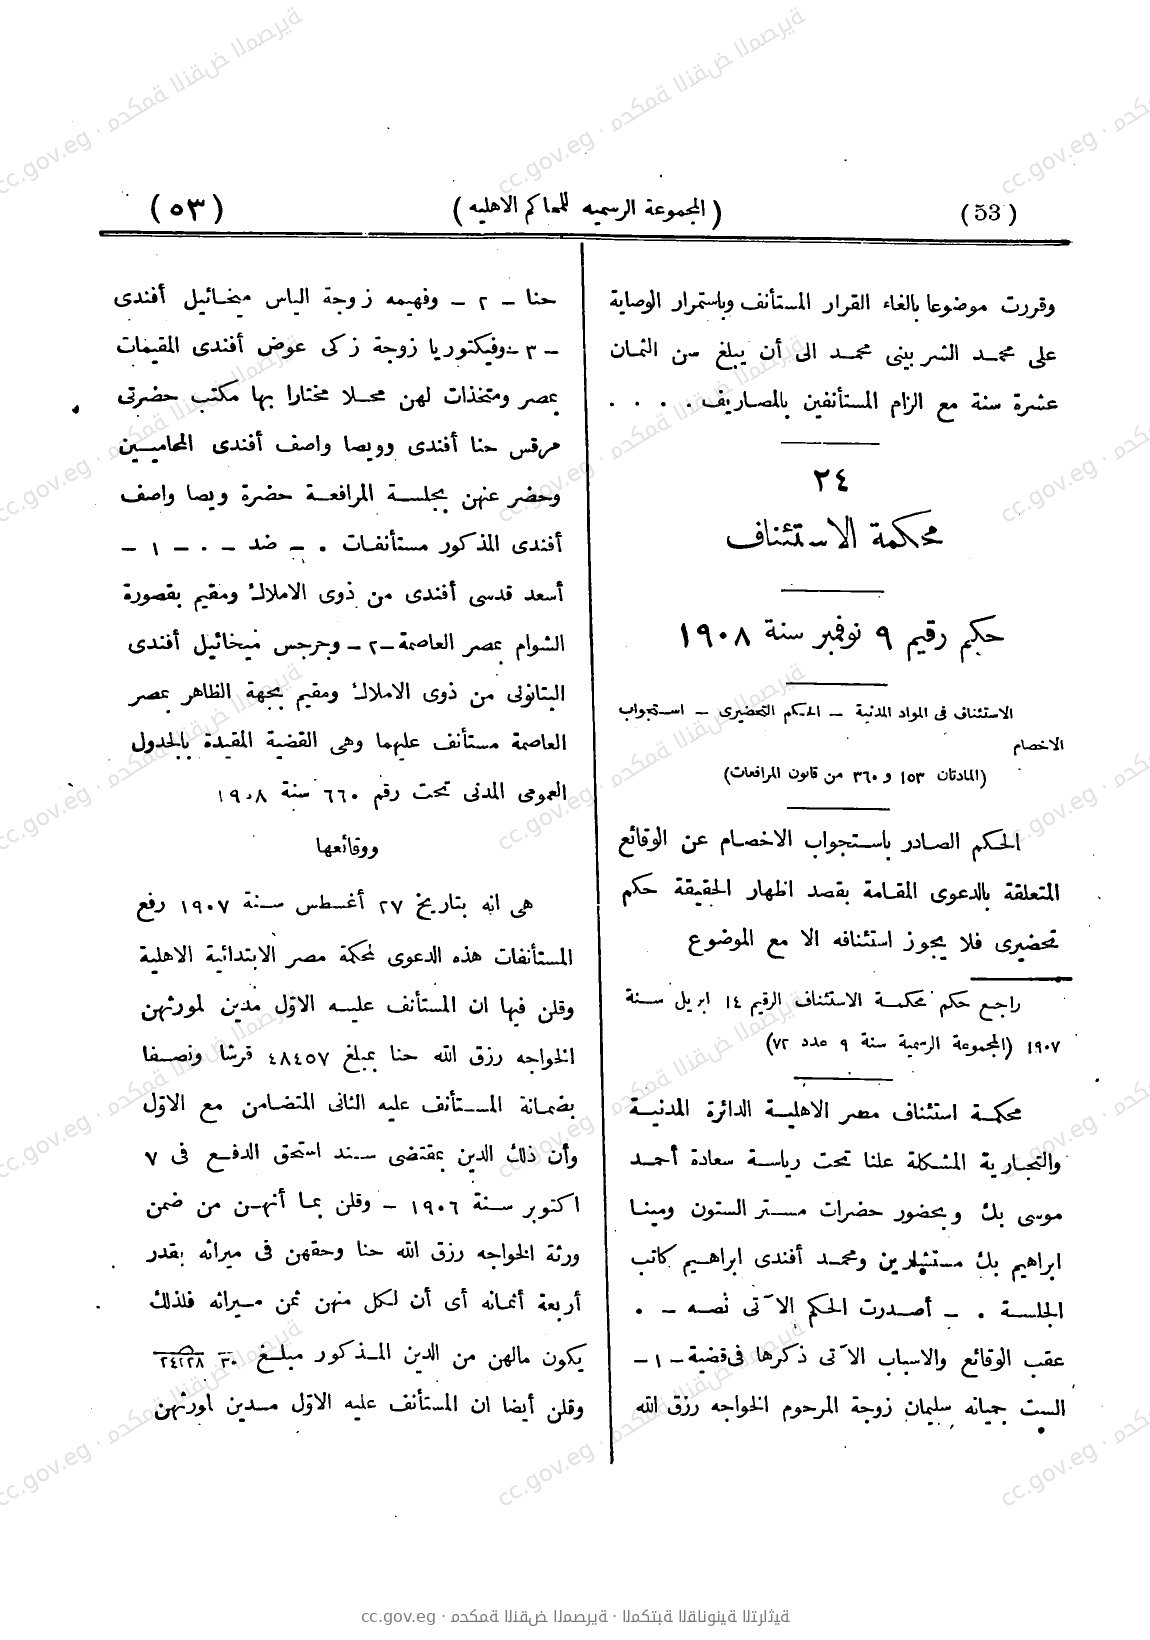 (53)
(المجموعة الرسميه للمحاكم الاهليه)
(٥٣)
وقررت موضوعا بالغاء القرار المستأنف وباستمرار الوصاية
على محمد الشربينى محمد الى أن يبلغ سن الثمان
عشرة سنة مع الزام المستأنفين بالمصاريف . . . .
٢٤
محكمة الاستئناف
حكم رقيم ٩ نوفمبر سنة ١٩٠٨
الاستئناف فى المواد المدنية – الحكم التحضيرى – استجواب
الاخصام
(المادتان ١٥٣ و ٣٦٠ من قانون المرافعات)
الحكم الصادر باستجواب الاخصام عن الوقائع
المتعلقة بالدعوى المقامة بقصد اظهار الحقيقة حكم
تحضيرى فلا يجوز استئنافه الا مع الموضوع
راجع حكم محكمة الاستئناف الرقيم ١٤ ابريل سنة
١٩٠٧ (المجموعة الرسمية سنة ٩ عدد ٧٢)
محكمة استئناف مصر الاهلية الدائرة المدنية
والتجارية المشكلة علنا تحت رياسة سعادة أحمد
موسى بك وبحضور حضرات مستر الستون ومينا
ابراهيم بك مستشارين ومحمد أفندى ابراهيم كاتب
الجلسة . – أصدرت الحكم الآتى نصه – .
عقب الوقائع والاسباب الآتى ذكرها فى قضية – ١ –
الست جميانه سليمان زوجة المرحوم الخواجه رزق الله
حنا – ٢ – وفهيمه زوجة الياس ميخائيل أفندى
– ٣ – وفيكتوريا زوجة زكى عوض أفندى المقيمات
بمصر ومتخذات لهن محلا مختارا بها مكتب حضرتى
مرقس حنا أفندى وويصا واصف أفندى المحاميين
وحضر عنهن بجلسة المرافعة حضرة ويصا واصف
أفندى المذكور مستأنفات . – ضد – . – ١ –
أسعد قدسى أفندى من ذوى الاملاك ومقيم بقصورة
الشوام بمصر العاصمة – ٢ – وجرجس ميخائيل أفندى
البتانونى من ذوى الاملاك ومقيم بجهة الظاهر بمصر
العاصمة مستأنف عليهما وهى القضية المقيدة بالجدول
العمومى المدنى تحت رقم ٦٦٠ سنة ١٩٠٨
ووقائعها
هى انه بتاريخ ٢٧ أغسطس سنة ١٩٠٧ رفع
المستأنفات هذه الدعوى لمحكمة مصر الابتدائية الاهلية
وقلن فيها ان المستأنف عليه الاوّل مدين لمورثهن
الخواجه رزق الله حنا بمبلغ ٤٨٤٥٧ قرشا ونصفا
بضمانة المستأنف عليه الثانى المتضامن مع الاوّل
وأن ذلك الدين بمقتضى سند استحق الدفع فى ٧
اكتوبر سنة ١٩٠٦ – وقلن بما أنهن من ضمن
ورثة الخواجه رزق الله حنا وحقهن فى ميراثه بقدر
أربعة أثمانه أى أن لكل منهن ثمن ميراثه فلذلك
يكون مالهن من الدين المذكور مبلغ ٣٠ ٢٤٢٢٨
وقلن أيضا ان المستأنف عليه الاوّل مدين لمورثهن
cc.gov.eg · محكمة النقض المصرية · المكتبة القانونية التراثية